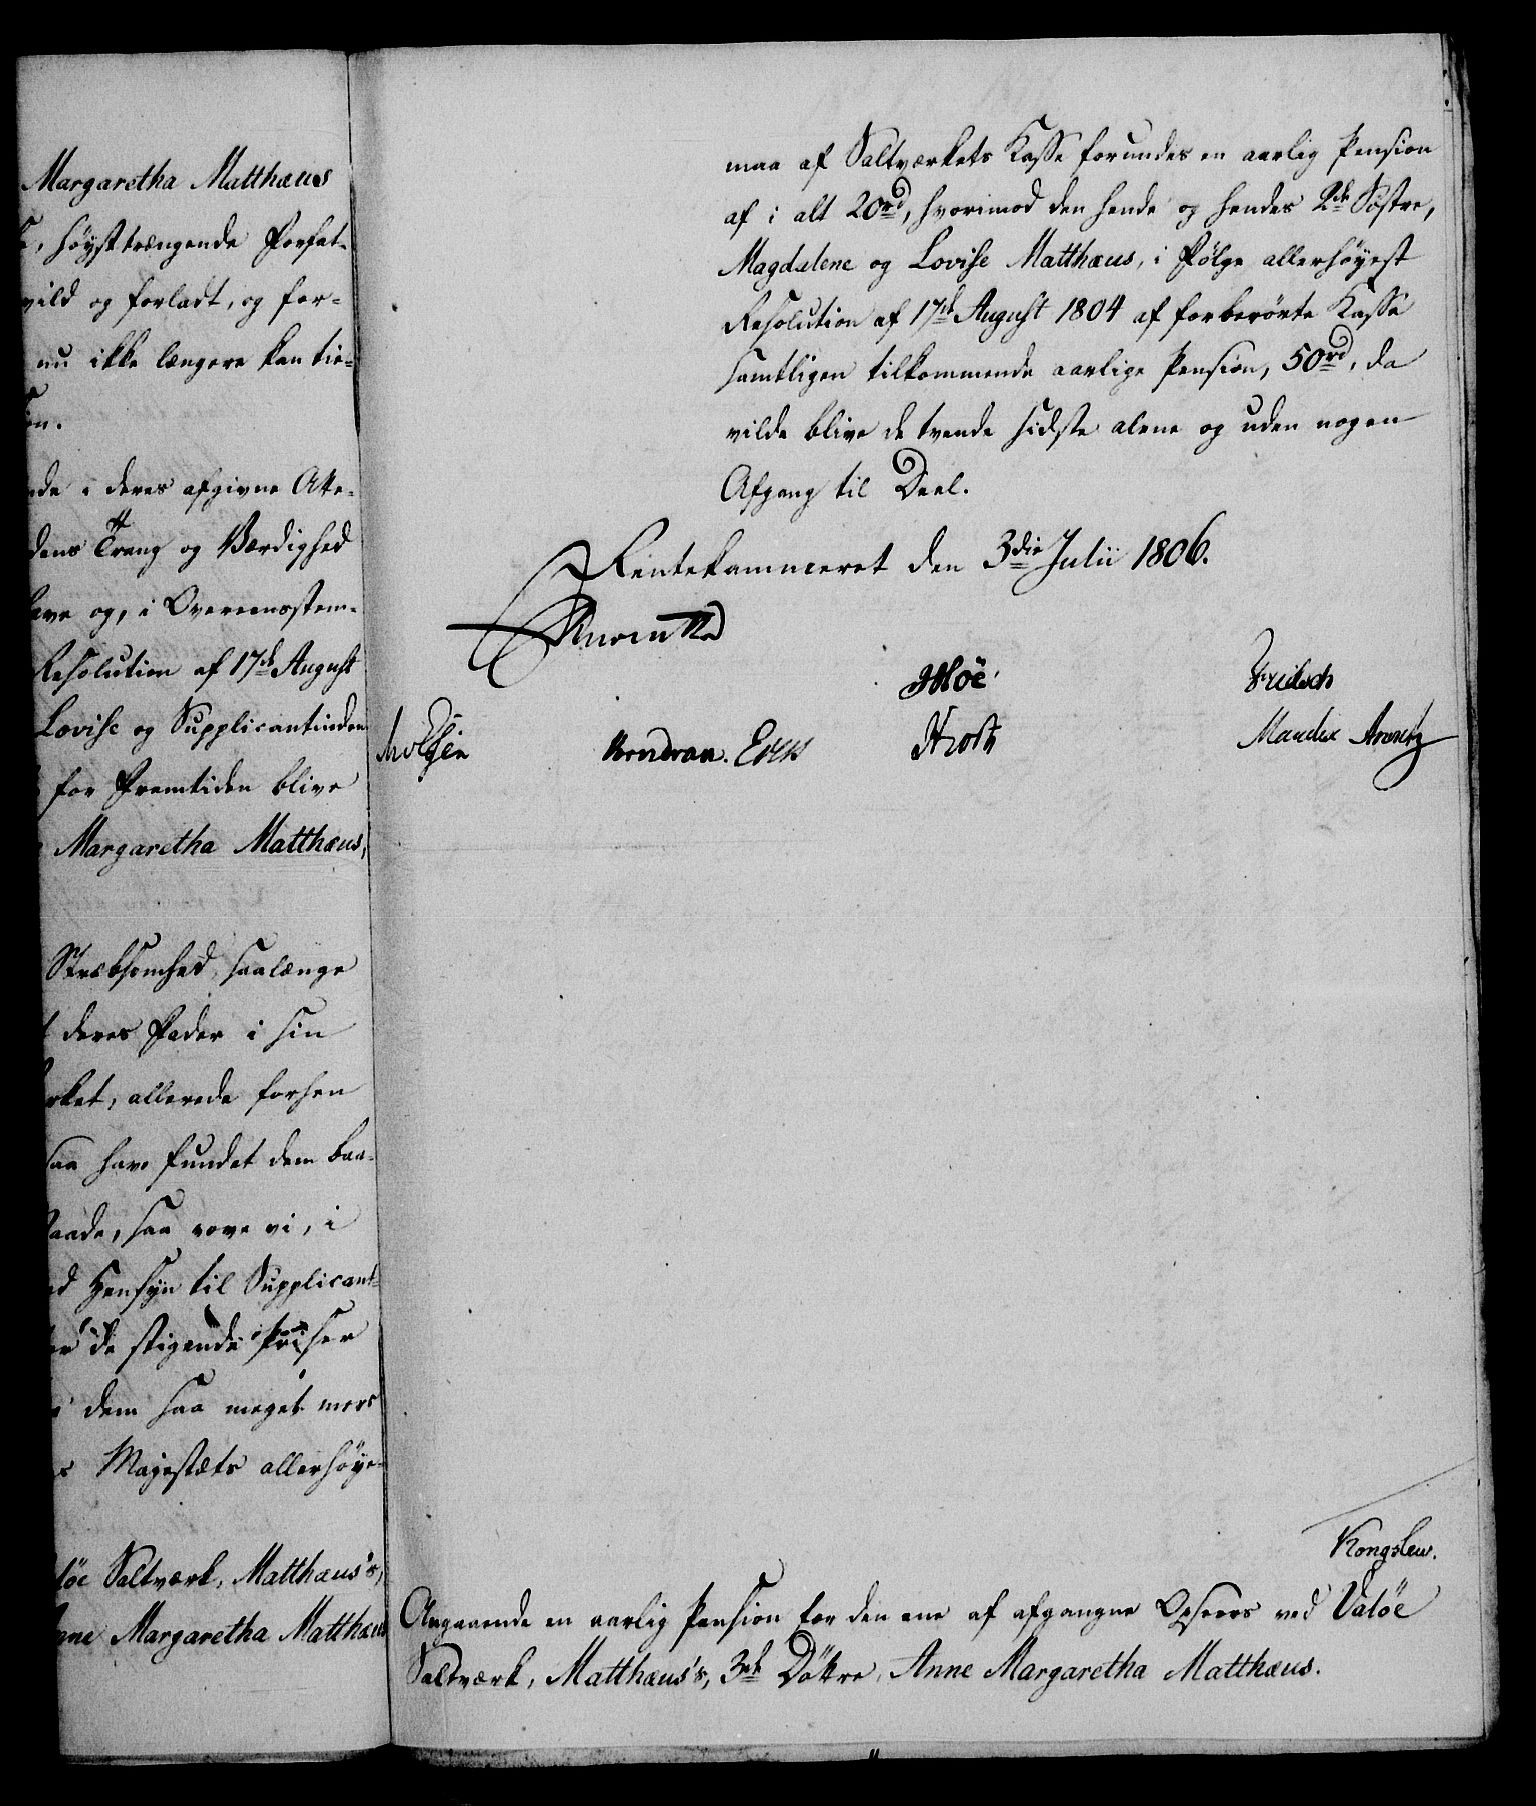 Margaretha Matthæus
høysttrængende Forfat-
vild og forladt, og for-
nu ikke længere kan tie-
on.
nde i deres afgivne Atte-
dens Trang og Værdighed
have og, i Overeensstem-
Resolution af 17de August
Lovise og Supplicantinden
for Fremtiden blive
Margaretha Matthæus,
Stræbsomhed, saalænge
deres Fader i sin
rket, allerede forhen
saa have fundet dem baa-
Naade, saa vove vi, i
ed Hensyn til Supplicant-
de stigende Priser
dem saa meget meer
Majestæts allerhøye-
löe Saltværk, Matthæus's,
Anne Margaretha Matthæus
maa af Saltværkets Kasse forundes en aarlig Pension
af i alt 20rd, hvorimod den hende og hendes 2de Søstre,
Magdalene og Lovise Matthæus, i Følge allerhøyest
Resolution af 17de August 1804 af forberørte Kasse
samtligen tilkommende aarlige Pension, 50rd, da
vilde blive de tvende sidste alene og uden nogen
Afgang til Deel.
Rentekammeret den 3die Julii 1806.
Möe
Wendron. Eder
Kongslew.
Angaaende en aarlig Pension for den ene af afgangne Opseers ved Valöe
Saltværk, Matthæus's, 3de Døttre, Anne Margaretha Matthæus.